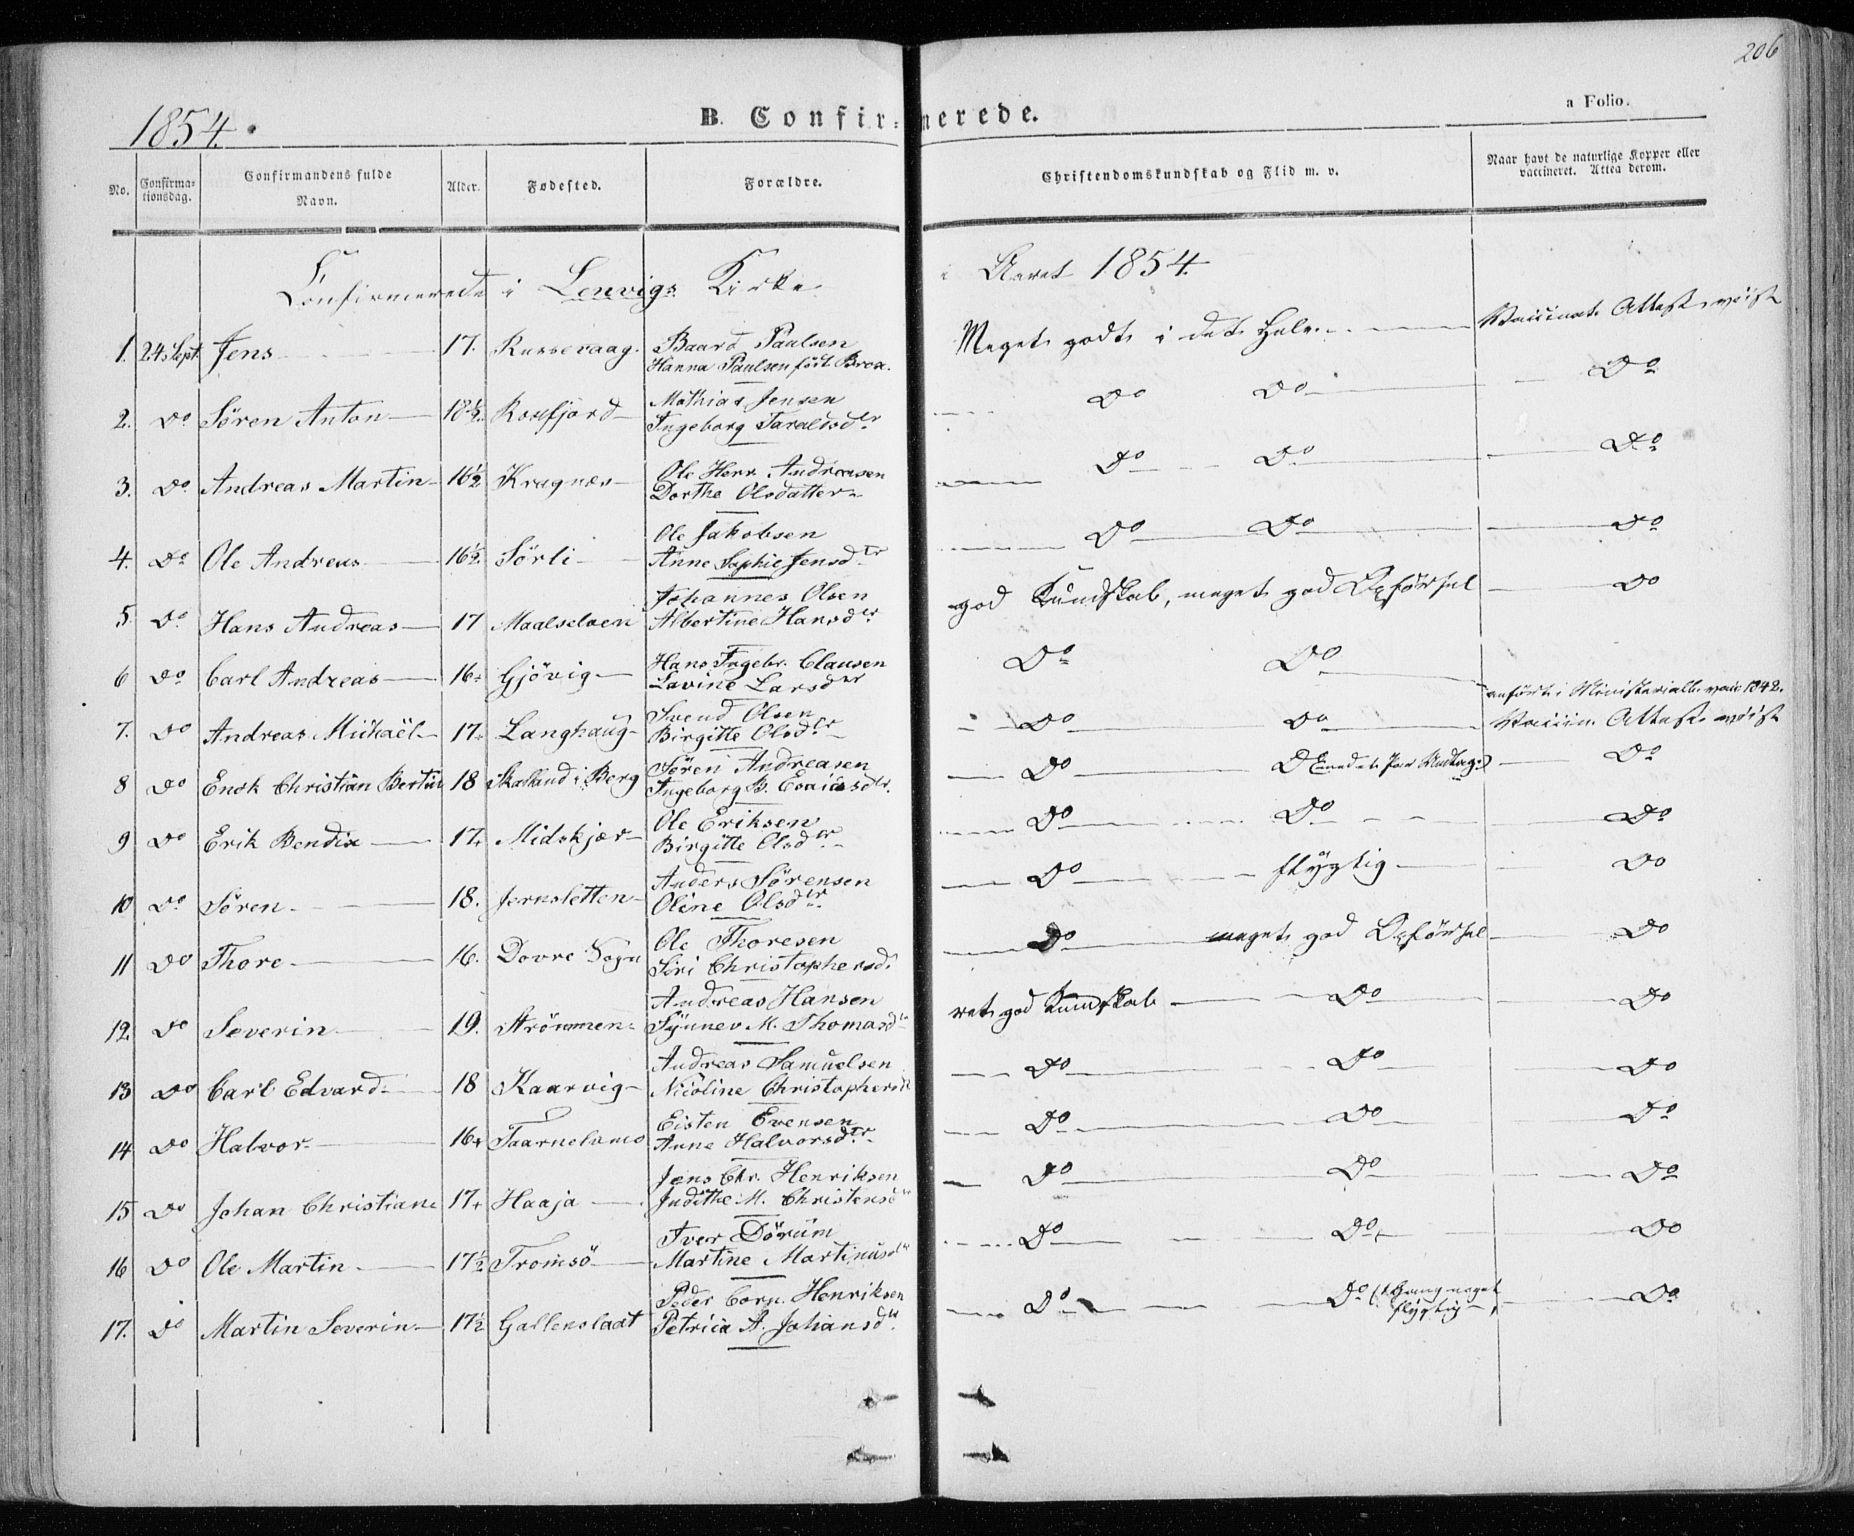 206
1854.
B. Confirmerede.
a Folio.
No.
Confirmationsdag.
Confirmandens fulde Navn.
Alder.
Fødested.
Forældre.
Christendomskundskab og Flid m. v.
Naar havt de naturlige Kopper eller vaccineret. Attest derom.
Confirmerede i Lenvigs Kirke i Aaret 1854.
1. 24 Sept. Jens 17. Russevaag. Baard Paulsen Meget godt i det Hele. Vaccinat. Attest vöist
Hanna Paulsen født Brox.
2. Do Sören Anton 18½ Rossfjord Mathias Jensen Do Do Do
Ingeborg Taraldsdtr
3. Do Andreas Martin 16½ Kragnæs Ole Henr. Andreasen Do Do Do
Dorthe Olsdatter
4. Do Ole Andreas 16½ Sörli Ole Jakobsen Do Do Do
Anne Sophie Jensdtr
5 Do Hans Andreas 17 Maalselven Johannes Olsen god Kundskab, meget god Opförsel Do
Albertine Hansdtr
6 Do Carl Andreas 16 Gjövig Hans Ingebr. Clausen Do Do
Lavine Larsdtr anfört i Ministerialb. 1842.
7. Do Andreas Michaël 17 Langhaug Svend Olsen Do Do Vaccin. Attest vöist
Birgitte Olsdtr
8 Do Enok Christian Bertin 18 Skaland i Berg Sören Andreasen Do Do Do
Ingeborg B. Esaiasdtr.
9 Do Erik Bendix 17 Midskjær Ole Eriksen Do Do Do
Birgitte Olsdtr
10 Do Sören 18. Jernsletten Anders Sörensen Do flygtig Do
Oline Olsdtr
11 Do Thore 16. Dovre Sogn Ole Thoresen Do meget god Opförsel Do
Siri Christophersd.
12. Do Severin 19. Strömmen Andreas Hansen ret god Kundskab Do Do
Synnev M. Thomasd
13 Do Carl Edvard 18 Kaarvig Andreas Samuelsen Do Do Do
Nicoline Christophersd
14 Do Halvor 16 Taarnelvmo Eisten Evensen Do Do Do
Anne Halvorsdtr
15 Do Johan Christian 17 Haaja Jens Chr. Henriksen Do Do Do
Judithe M. Christensd
16 Do Ole Martin 17½ Tromsö Iver Dörum Do Do Do
Martine Martinusd
17. Do Martin Severin 17½ Gallenslaat Peder Corn. Henriksen Do Do (1 Gang meget flygtig) Do
Petricia A. Johansdtr